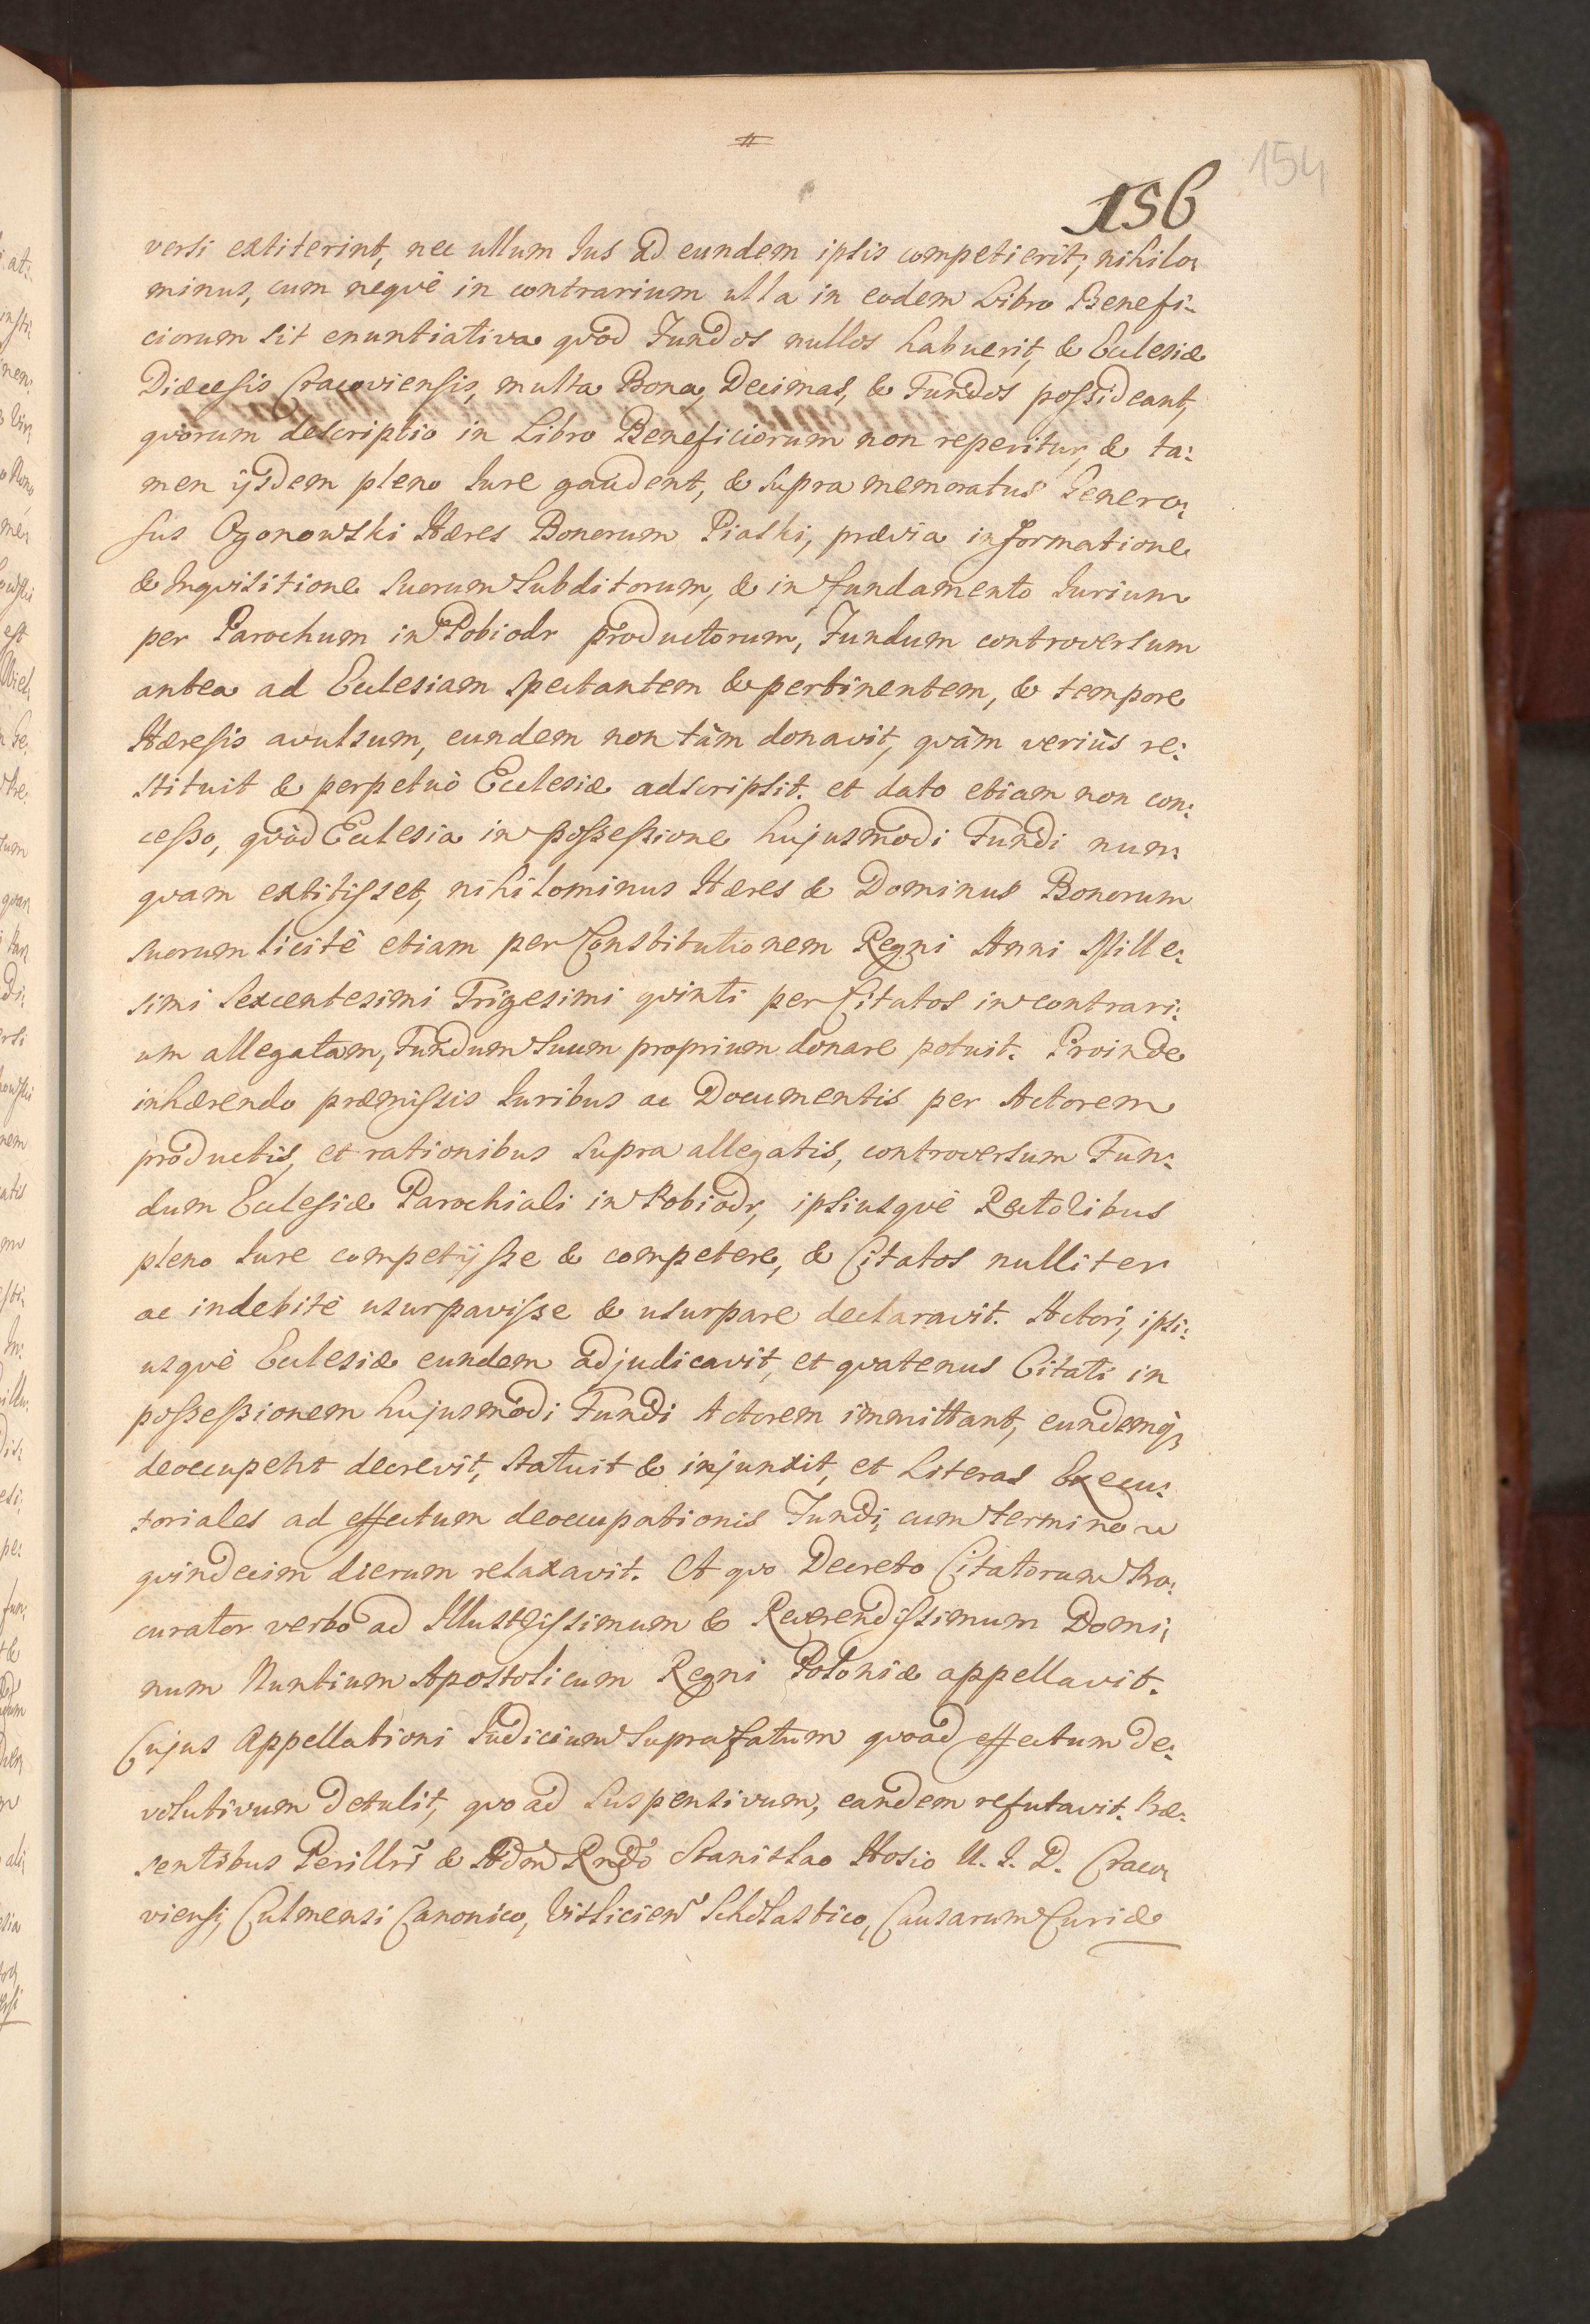 156
154
versi extiterint, nec ullum Jus ad eundem ipsis competierit, nihilo:
minus, cum neqvè in contrarium ulla in eodem Libro Benefi:
ciorum sit enuntiativa qvod Fundos nullos habuerit, & Ecclesiæ
Diæcesis Cracoviensis, multa Bona, Decimas, & Fundos possideant,
qvorum descriptio in Libro Beneficiorum non reperitur, & ta:
men ijsdem pleno Jure gaudent, & supra memoratus Genero:
sus Ogonowski Hæres Bonorum Piaski, prævia informatione
& Inqvisitione suorum Subditorum, & in fundamento Jurium
per Parochum in Pobiodr productorum, Fundum controversum
antea ad Ecclesiam spectantem & pertinentem, & tempore
Hæresis avulsum, eundem non tàm donavit, qvàm veriùs re:
stituit & perpetuò Ecclesiæ adscripsit. et dato etiam non con:
cesso, qvòd Ecclesia in possessione hujusmodi Fundi num:
qvam extitisset, nihilominus Hæres & Dominus Bonorum
suorum licitè etiam per Constitutionem Regni Anni Mille:
simi Sexcentesimi Trigesimi qvinti per Citatos in contrari:
um allegatam, Fundum suum proprium donare potuit. Proinde
inhærendo præmissis Juribus ac Documentis per Actorem
productis, et rationibus supra allegatis, controversum Fun:
dum Ecclesiæ Parochiali in Pobiodr, ipsiusqvè Rectoribus
pleno Jure competijsse & competere, & Citatos nulliter
ac indebitè usurpavisse & usurpare declaravit. Actori, ipsi:
usqvè Ecclesiæ eundem adjudicavit, et qvatenus Citati in
possessionem hujusmodi Fundi Actorem immittant, eundemq̃
deoccupent decrevit, statuit & injunxit, et Literas Execu:
toriales ad effectum deoccupationis Fundi, cum termino
qvindecim dierum relaxavit. A qvo Decreto Citatorum Pro:
curator verbo ad Illustrissimum & Reverendissimum Domi:
num Nuntium Apostolicum Regni Poloniæ appellavit.
Cujus Appellationi Judicium suprafatum qvoad effectum de:
volutivum detulit, qvo ad suspensivum, eandem refutavit. Præ:
sentibus Perillri & Adm Rndo Stanislao Hosio U. J. D. Craco:
viensi, Culmensi Canonico, Vislicien Scholastico, Causarum Curiæ